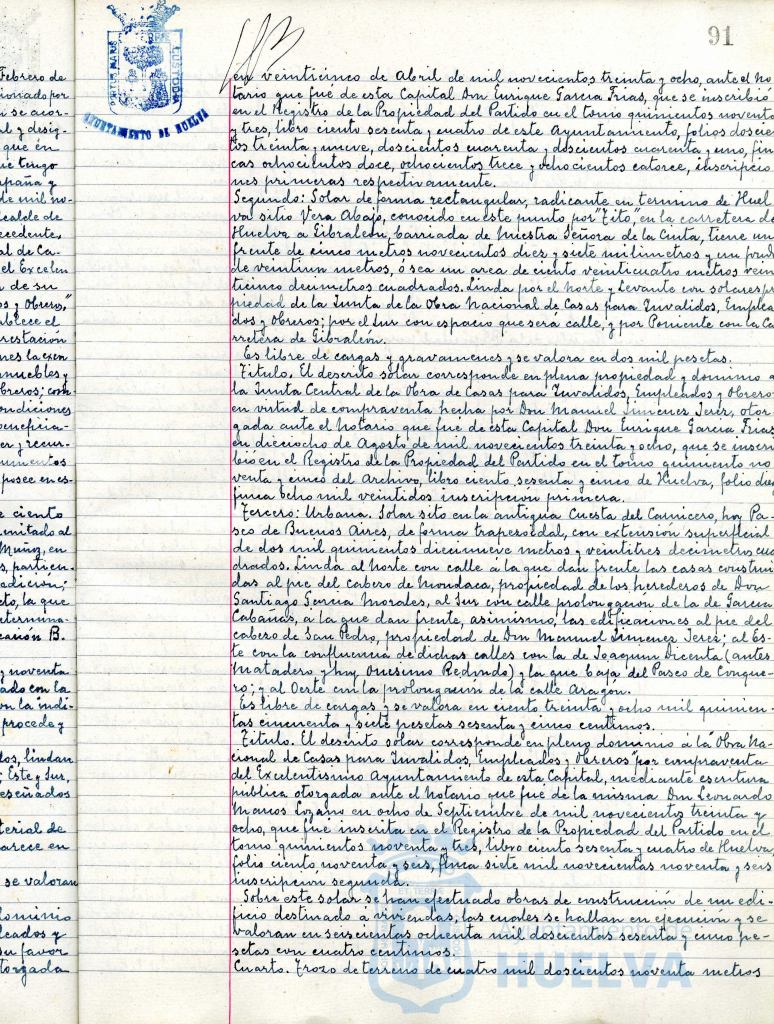 91
PORTUS MARIS CUSTODIA
AYUNTAMIENTO DE HUELVA
Febrero de
cionado por
se acor-
y desig-
que en
tengo
España y
de mil no-
calde de
ecedente,
al de Ca-
el Excelen
de su
s y Obreros,"
ablece el
restación
nes la exen
nmuebles y
breros; com-
ondiciones
beneficia-
er y recur-
numentos
posee en es-
ciento
mitado al
Muñoz, en
s, partien-
edición;
to, la que
eterminna-
cación B.
y noventa
ado con la
on la indi-
procede y
dos, lindan
Este y Sur,
eseñados
terial de
parece en
se valoran
dominio
leados y
su favor
torgada
en veinticinco de Abril de mil novecientos treinta y ocho, ante el No
tario que fué de esta Capital Don Enrique Garcia Frias, que se inscribió
en el Registro de la Propiedad del Partido en el tomo quinientos noventa
y tres, libro ciento sesenta y cuatro de este Ayuntamiento, folios doscien
tos treinta y nueve, doscientos cuarenta y doscientos cuarenta y uno, fin
cas ochocientos doce, ochocientos trece y ochocientos catorce, inscripcio
nes primeras respectivamente.
Segundo: Solar de forma rectangular, radicante en termino de Huel
va al sitio Vera Abajo, conocido en este punto por "Tito", en la carretera de
Huelva a Gibraleon, barriada de Nuestra Señora de la Cinta, tiene un
frente de cinco metros novecientos diez y siete milimetros y un fondo
de veintiun metros, ó sea un area de ciento veinticuatro metros vein
ticinco decimetros cuadrados. Linda por el norte y Levante con solares pro
piedad de la Junta de la Obra Nacional de Casas para Invalidos, Emplea
dos y Obreros; por el Sur con espacio que será calle, y por Poniente con la Ca
rretera de Gibraleón.
Es libre de cargas y gravamenes y se valora en dos mil pesetas.
Titulo. El descrito solar corresponde en plena propiedad y dominio a
la Junta Central de la Obra de Casas para Invalidos, Empleados y Obreros
en virtud de compraventa hecha por Don Manuel Jimenez Jerez, otor
gada ante el Notario que fué de esta Capital Don Enrique Garcia Frias
en dieciocho de Agosto de mil novecientos treinta y ocho, que se inscri
bió en el Registro de la Propiedad del Partido en el tomo quiniento no
venta y cinco del Archivo, libro ciento sesenta y cinco de Huelva, folio diez
finca ocho mil veintidos inscripción primera.
Tercero: Urbana. Solar sito en la antigua Cuesta del Carnicero, hoy Pa-
seo de Buenos Aires, de forma trapezoidal, con extensión superficial
de dos mil quinientos diecinueve metros y veintitres decimetros cua
drados. Linda al Norte con calle á la que dan frente las casas construi
das al pie del Cabezo de Mondaca, propiedad de los herederos de Don
Santiago Garcia Morales, al Sur con calle prolongacion de la de Garcia
Cabañas, a la que dan frente, asimismo, las edificaciones al pie del
cabezo de San Pedro, propiedad de Don Manuel Jimenez Jerez; al Es-
te con la confluencia de dichas calles con la de Joaquin Dicenta (antes
Matadero y hoy Onesimo Redondo) y la que baja del Paseo de Conque
ro; y al Oeste con la prolongacion de la calle Aragón.
Es libre de cargas y se valora en ciento treinta y ocho mil quinien-
tas cincuenta y siete pesetas sesenta y cinco centimos.
Titulo. El descrito solar corresponde en pleno dominio á la "Obra Na-
cional de Casas para Invalidos, Empleados y Obreros" por compraventa
del Excelentisimo Ayuntamiento de esta Capital, mediante escritura
publica otorgada ante el Notario que fué de la misma Don Leonardo
Manos Lozano en ocho de Septiembre de mil novecientos treinta y
ocho, que fué inscrita en el Registro de la Propiedad del Partido en el
tomo quinientos noventa y tres, libro ciento sesenta y cuatro de Huelva,
folio ciento noventa y seis, finca siete mil novecientas noventa y seis
inscripción segunda.
Sobre este solar se han efectuado obras de construcción de un edi-
ficio destinado á viviendas, las cuales se hallan en ejecución y se
valoran en seiscientas ochenta mil doscientas sesenta y cinco pe-
setas con cuatro centimos.
Cuarto. Trozo de terreno de cuatro mil doscientos noventa metros
Ayuntamiento de
HUELVA